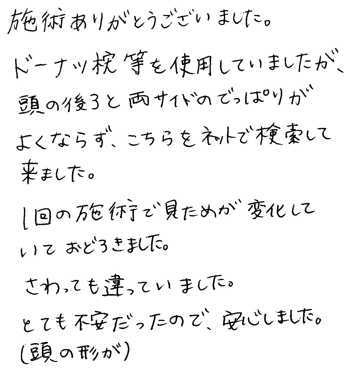 施術ありがとうございました。
ドーナツ枕等を使用していましたが、
頭の後ろと両サイドのでっぱりが
よくならず、こちらをネットで検索して
来ました。
1回の施術で見ためが変化して
いておどろきました。
さわっても違っていました。
とても不安だったので、安心しました。
(頭の形が)